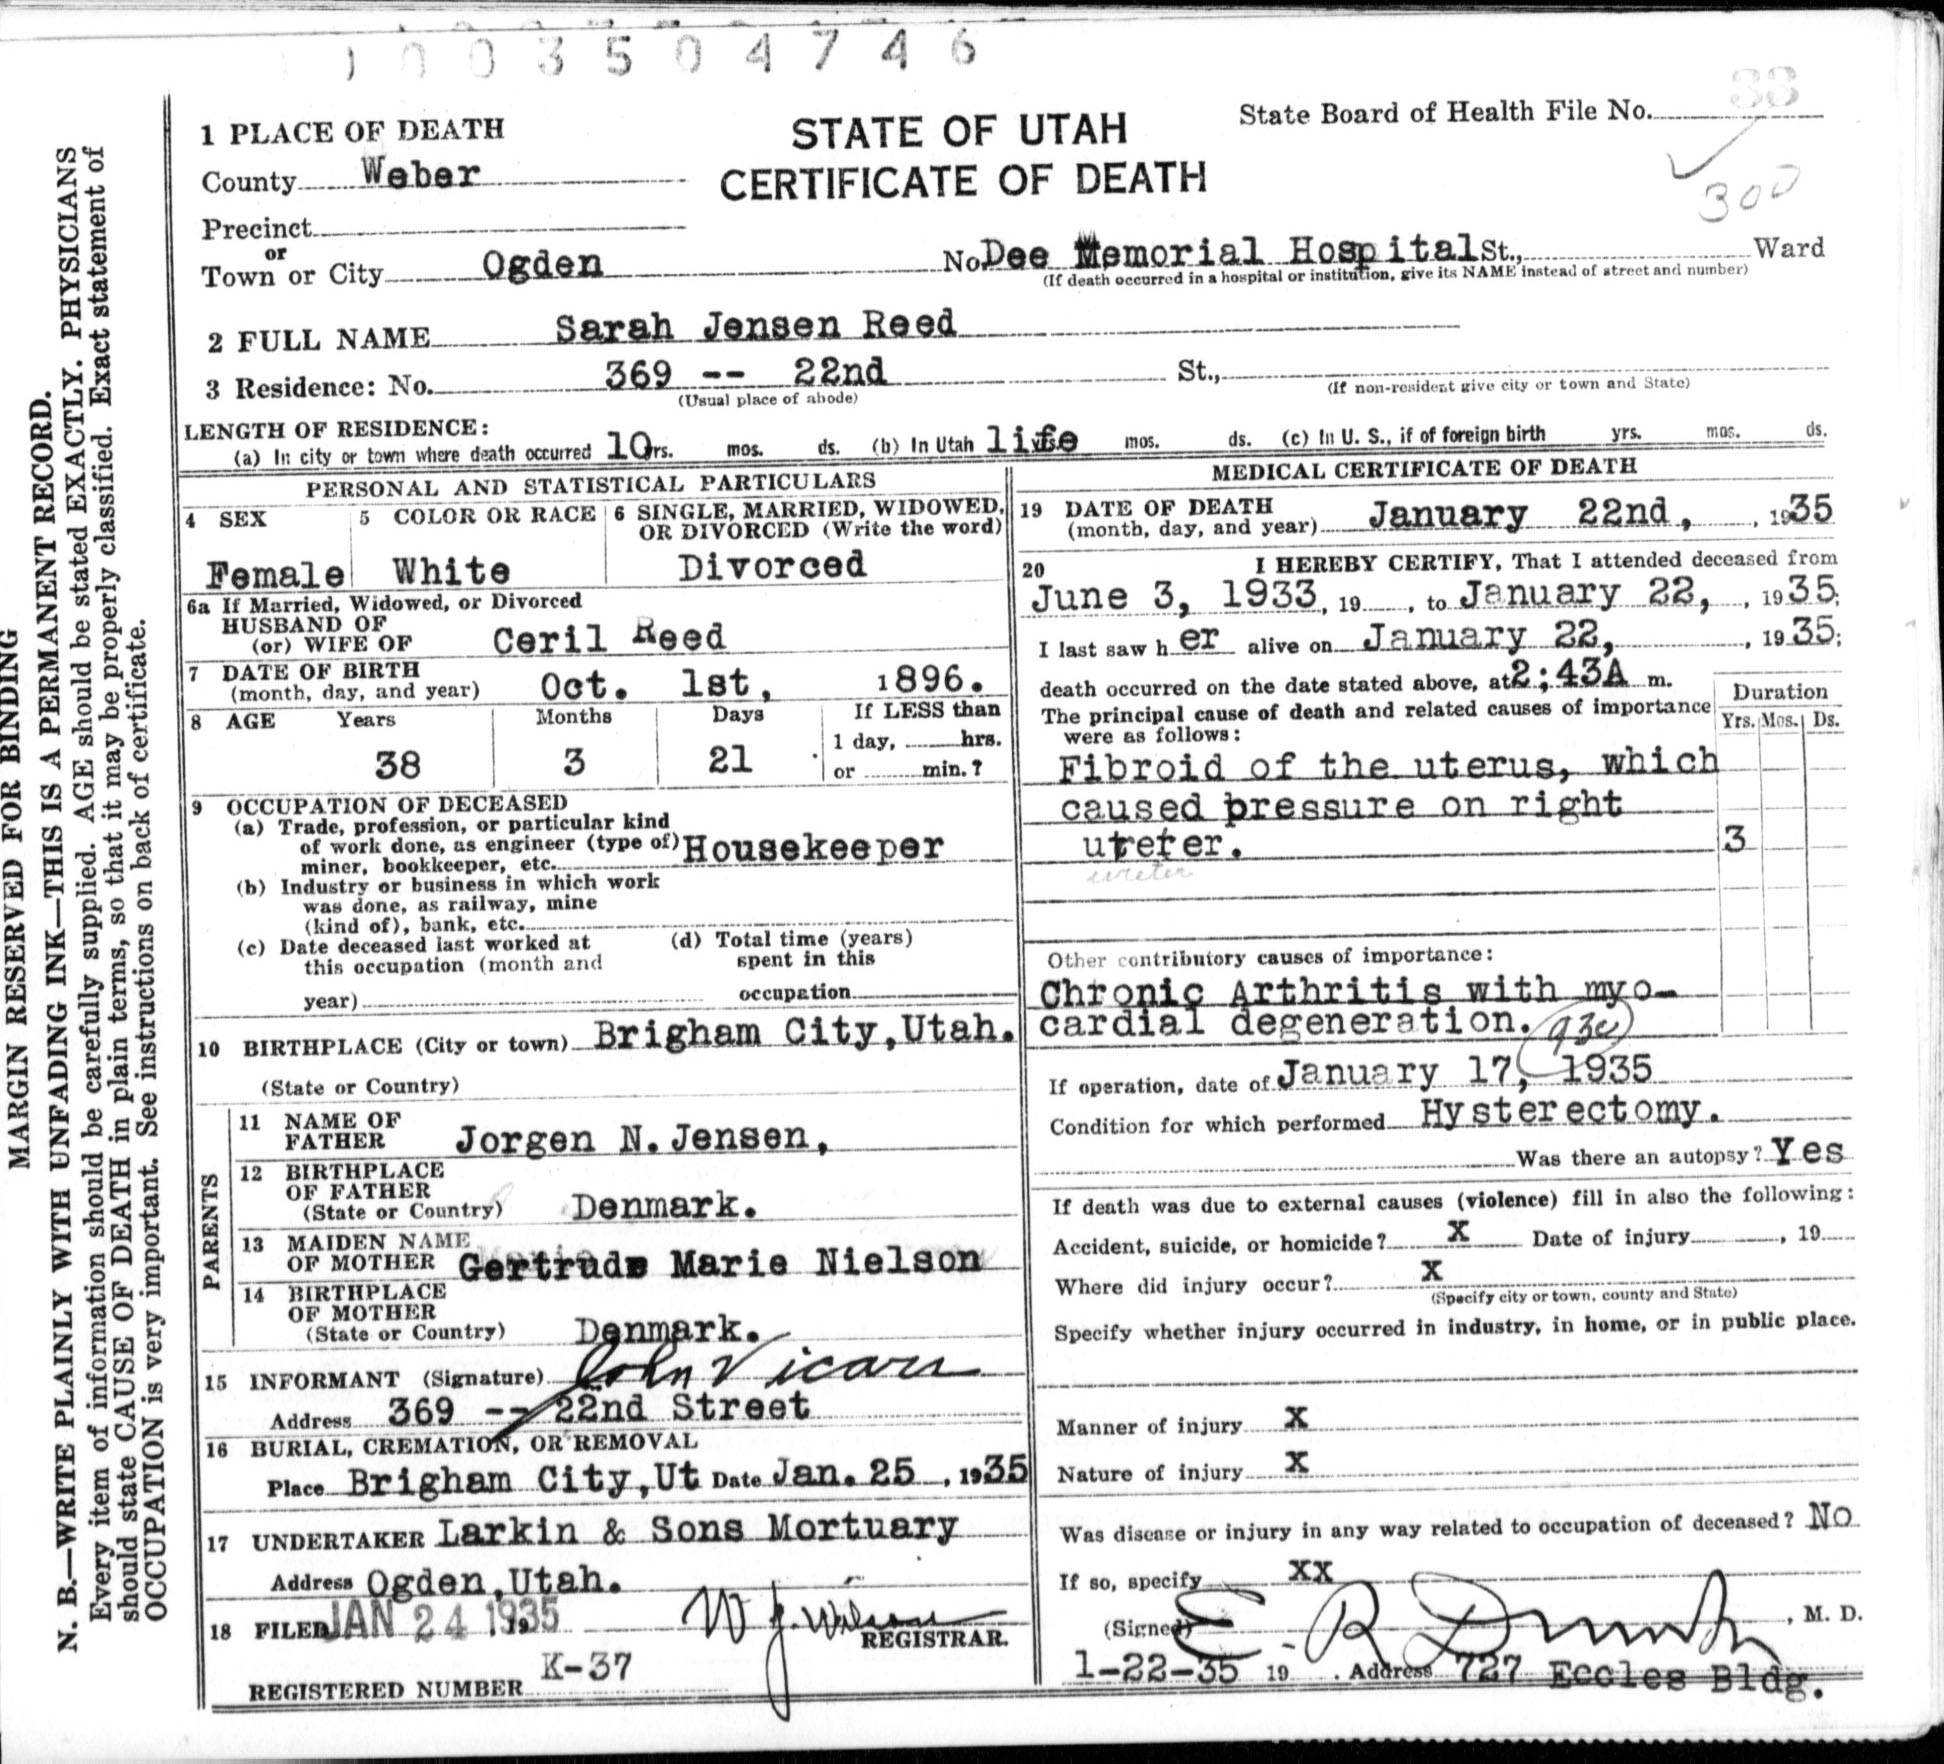 1003504746
33
300
MARGIN RESERVED FOR BINDING
N. B.—WRITE PLAINLY WITH UNFADING INK—THIS IS A PERMANENT RECORD.
Every item of information should be carefully supplied. AGE should be stated EXACTLY. PHYSICIANS
should state CAUSE OF DEATH in plain terms, so that it may be properly classified. Exact statement of
OCCUPATION is very important. See instructions on back of certificate.
STATE OF UTAH
CERTIFICATE OF DEATH
State Board of Health File No.
1 PLACE OF DEATH
County Weber
Precinct
or
Town or City Ogden No. Dee Memorial Hospital St., Ward
(If death occurred in a hospital or institution, give its NAME instead of street and number)
2 FULL NAME Sarah Jensen Reed
3 Residence: No. 369 -- 22nd St.,
(Usual place of abode) (If non-resident give city or town and State)
LENGTH OF RESIDENCE:
(a) In city or town where death occurred 10 yrs. mos. ds. (b) In Utah life yrs. mos. ds. (c) In U. S., if of foreign birth yrs. mos. ds.
PERSONAL AND STATISTICAL PARTICULARS
4 SEX
Female
5 COLOR OR RACE
White
6 SINGLE, MARRIED, WIDOWED,
OR DIVORCED (Write the word)
Divorced
6a If Married, Widowed, or Divorced
HUSBAND OF
(or) WIFE OF Ceril Reed
7 DATE OF BIRTH
(month, day, and year) Oct. 1st, 1896.
8 AGE Years Months Days If LESS than
1 day, hrs.
38 3 21 or min.?
9 OCCUPATION OF DECEASED
(a) Trade, profession, or particular kind
of work done, as engineer (type of)
miner, bookkeeper, etc. Housekeeper
(b) Industry or business in which work
was done, as railway, mine
(kind of), bank, etc.
(c) Date deceased last worked at
this occupation (month and
year)
(d) Total time (years)
spent in this
occupation
10 BIRTHPLACE (City or town) Brigham City, Utah.
(State or Country)
PARENTS
11 NAME OF
FATHER Jorgen N. Jensen,
12 BIRTHPLACE
OF FATHER
(State or Country) Denmark.
13 MAIDEN NAME
OF MOTHER Gertrude Marie Nielson
14 BIRTHPLACE
OF MOTHER
(State or Country) Denmark.
15 INFORMANT (Signature) John Vicars
Address 369 -- 22nd Street
16 BURIAL, CREMATION, OR REMOVAL
Place Brigham City, Ut Date Jan. 25, 1935
17 UNDERTAKER Larkin & Sons Mortuary
Address Ogden, Utah.
18 FILED JAN 24 1935 W. J. Wilson
REGISTRAR.
REGISTERED NUMBER K-37
MEDICAL CERTIFICATE OF DEATH
19 DATE OF DEATH
(month, day, and year) January 22nd, , 1935
20 I HEREBY CERTIFY, That I attended deceased from
June 3, 1933, 19 , to January 22, , 1935;
I last saw h er alive on January 22, , 1935;
death occurred on the date stated above, at 2;43A m.
The principal cause of death and related causes of importance
were as follows:
Duration
Yrs. Mos. Ds.
Fibroid of the uterus, which
caused pressure on right
ureter. 3
ureter
Other contributory causes of importance:
Chronic Arthritis with myo-
cardial degeneration. 93c
If operation, date of January 17, 1935
Condition for which performed Hysterectomy.
Was there an autopsy? Yes
If death was due to external causes (violence) fill in also the following:
Accident, suicide, or homicide? X Date of injury , 19
Where did injury occur? X
(Specify city or town, county and State)
Specify whether injury occurred in industry, in home, or in public place.
Manner of injury X
Nature of injury X
Was disease or injury in any way related to occupation of deceased? No
If so, specify XX
(Signed) E R , M. D.
1-22-35 19 . Address 727 Eccles Bldg.